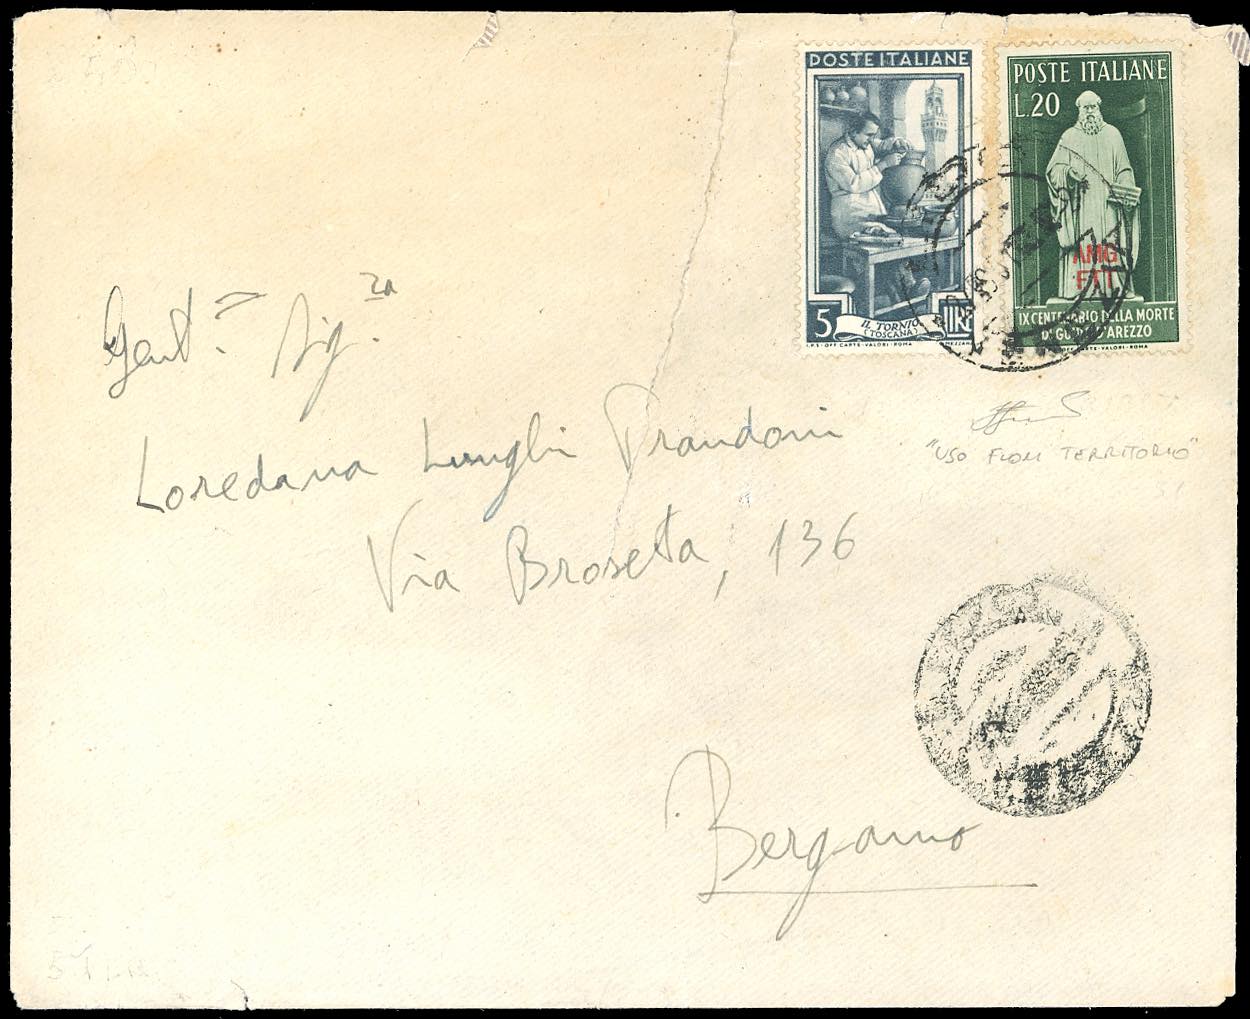 POSTE ITALIANE
5 LIRE
IL TORNIO
(TOSCANA)
I.P.S. OFF. CARTE-VALORI-ROMA
POSTE ITALIANE
L.20
AMG
FTT
IX CENTENARIO DELLA MORTE
DI GUIDO D'AREZZO
Gent. Sig.ra
Loredana Lunghi Prandoni
Via Broseta, 136
Bergamo
"USO FUORI TERRITORIO"